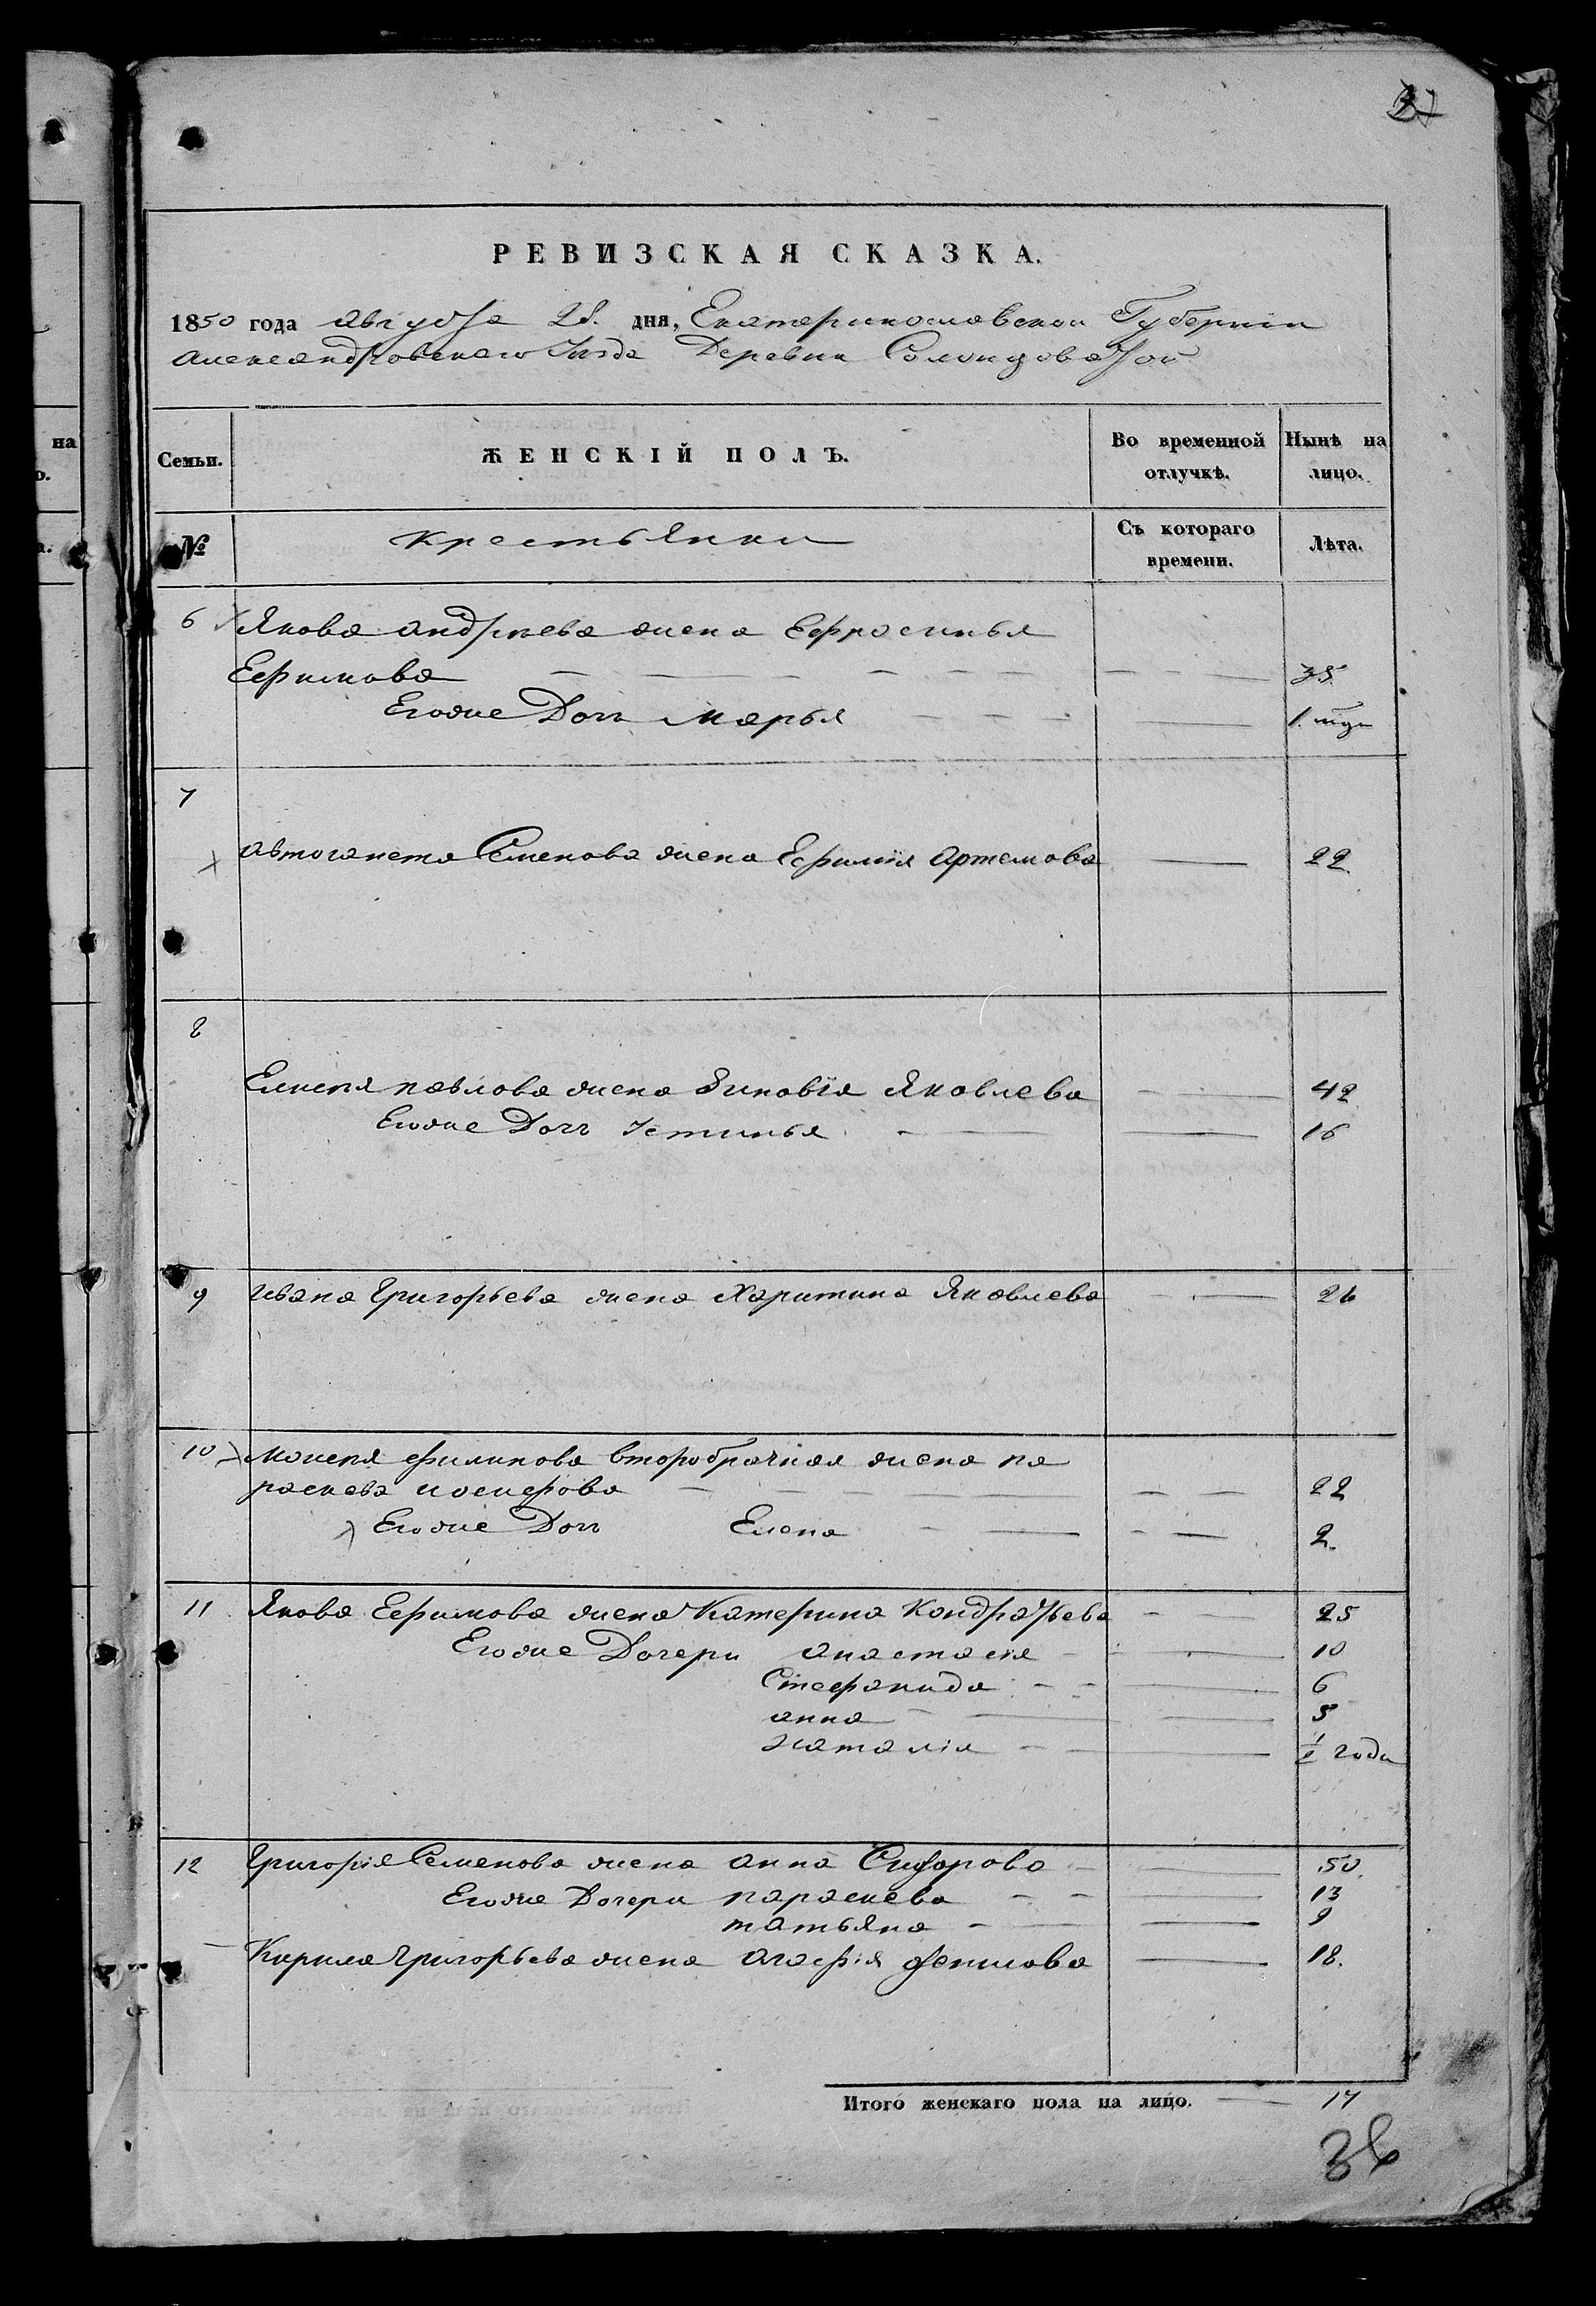 РЕВИЗСКАЯ СКАЗКА.
1850 года августа 28. дня, Екатеринославской Губернии
Александровскаго Уезда Деревни Солонцоватой
Семьи.
ЖЕНСКІЙ ПОЛЪ.
Во временной отлучкѣ.
Нынѣ на лицо.
№
крестьянки
Съ котораго времени.
Лѣта.
6 Якова андреева жена Ефросинья
Ефимова 35
Егоже Дочь марья 1.
7
автогенета Семенова жена Ефимія артемова 22
8
Елисея павлова жена Зиновія Яковлева 42
Егоже Дочь Устинья 16
9 ивана Григорьева жена Харитина Яковлева 26
10 моисея филипова второбрачная жена па
раскева иосифова 22
Егоже Дочь Елена 2
11 Якова Ефимова жена Катерина Кондратьева 25
Егоже Дочери анастасія 10
Стефанида 6
анна 5
наталія 1/2 года
12 Григорія Семенова жена анна Сидорова 50
Егоже Дочери параскева 13
татьяна 9
Кирила Григорьева жена агафія 18.
Итого женскаго пола на лицо. 17
36
на